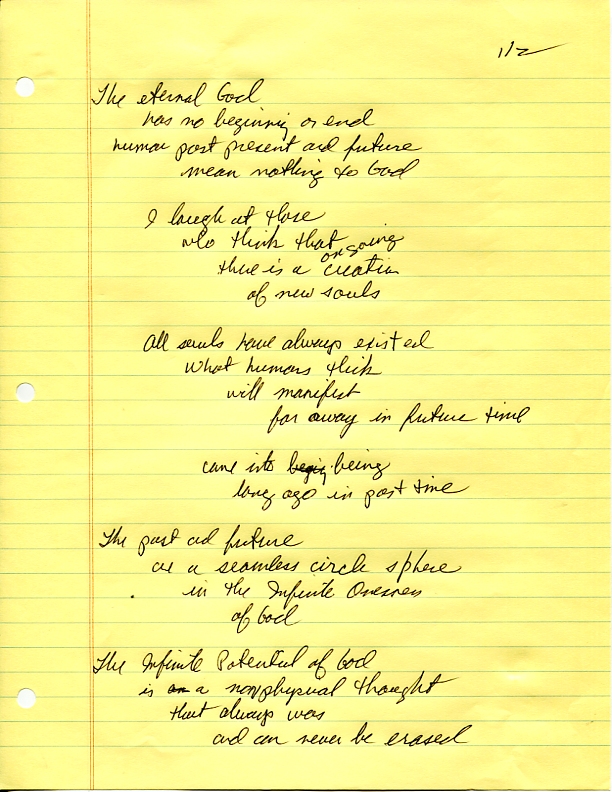 1/2
The eternal God
has no beginning or end
human past present and future
mean nothing to God
I laugh at those
who think that
there is a ongoing creation
of new souls
All souls have always existed
what humans think
will manifest
far away in future time
came into being
long ago in past time
The past and future
are a seamless circle sphere
in the Infinite Oneness
of God
The Infinite Potential of God
is a nonphysical thought
that always was
and can never be erased